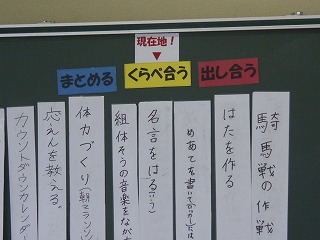 現在地!
▼
出し合う
くらべ合う
まとめる
騎馬戦の作戦
はたを作る
めあてを書いて
名言をはる
組体そうの音楽をなが
体力づくり(朝マラソン
応えんを教える。
カウントダウンカレンダ